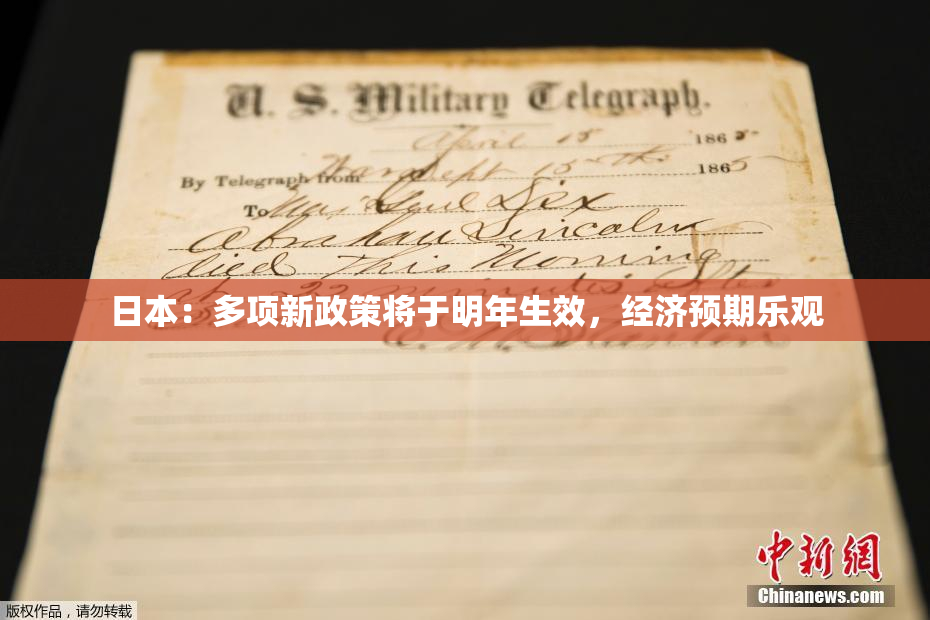 U. S. Military Telegraph.
April 15 1865
By Telegraph from War Dept 15th 1865
To Maj Genl Dix
Abraham Lincoln
died This Morning
22 minutes after
日本：多项新政策将于明年生效，经济预期乐观
E. M. Stanton
中新网
Chinanews.com
版权作品，请勿转载